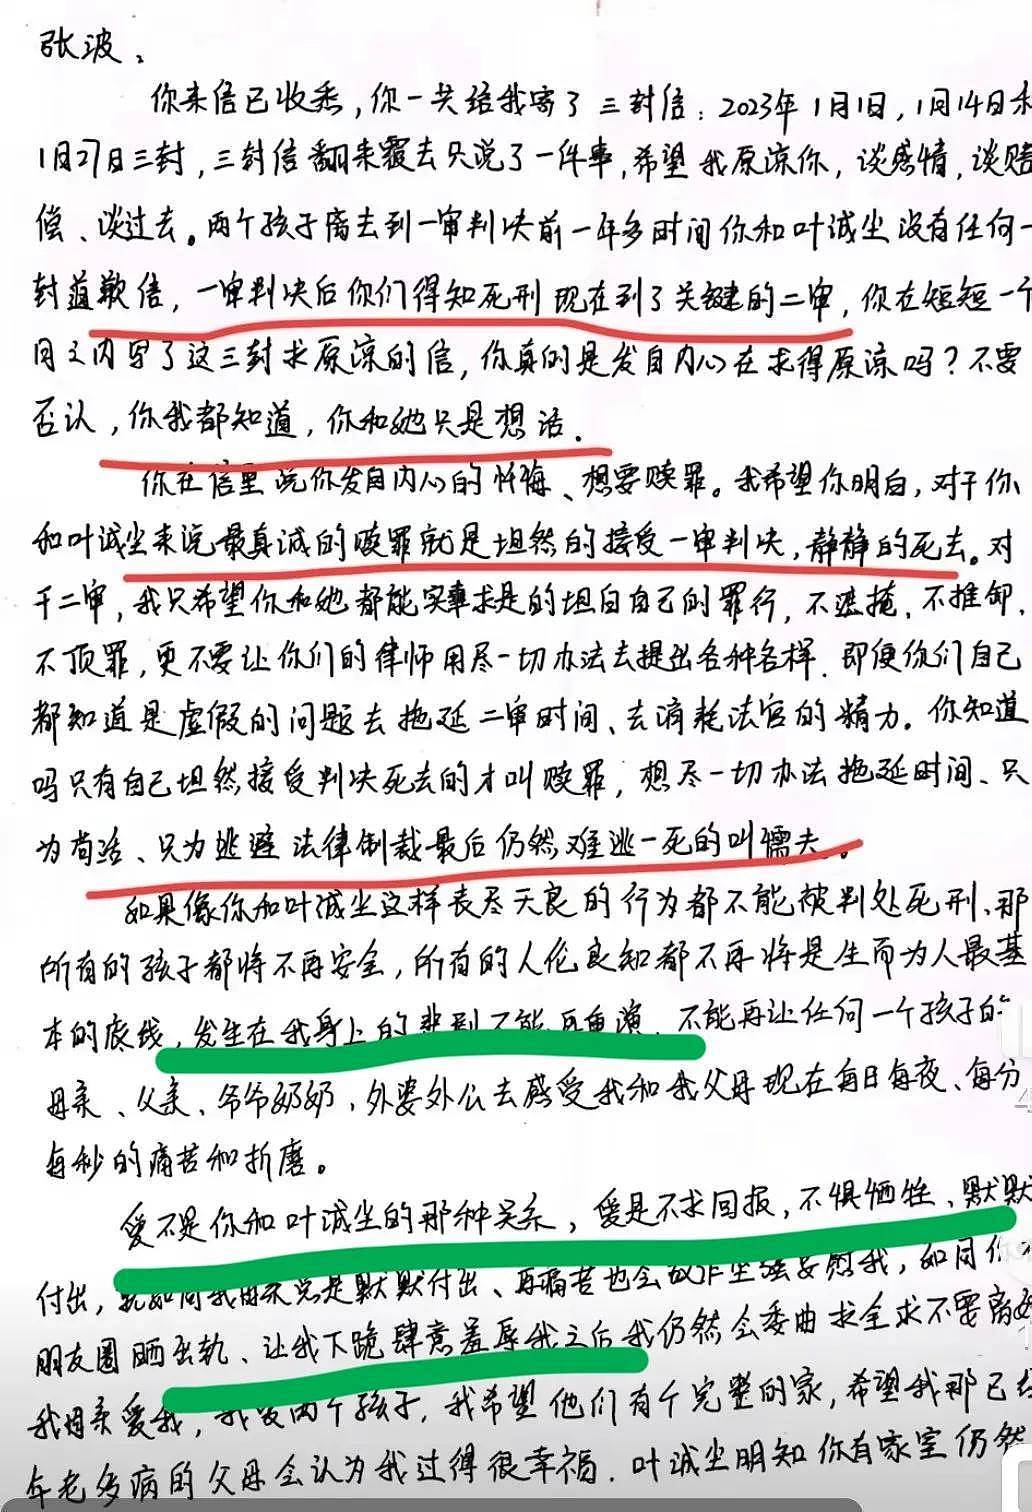 张波：
你来信已收悉，你一共给我寄了三封信：2023年1月1日，1月14日和
1月27日三封，三封信翻来覆去只说了一件事，希望我原谅你，谈感情，谈赔
偿、谈过去。两个孩子离去到一审判决前一年多时间你和叶诚尘没有任何一
封道歉信，一审判决后你们得知死刑现在到了关键的二审，你在短短一个
月之内写了这三封求原谅的信，你真的是发自内心在求得原谅吗？不要
否认，你我都知道，你和她只是想活．
你在信里说你发自内心的忏悔、想要赎罪。我希望你明白，对于你
和叶诚尘来说最真诚的赎罪就是坦然的接受一审判决，静静的死去。对
于二审，我只希望你和她都能实事求是的坦白自己的罪行，不遮掩，不推卸，
不顶罪，更不要让你们的律师用尽一切办法去提出各种各样．即便你们自己
都知道是虚假的问题去拖延二审时间、去消耗法官的精力。你知道
吗只有自己坦然接受判决死去的才叫赎罪，想尽一切办法拖延时间、只
为苟活、只为逃避法律制裁最后仍然难逃一死的叫懦夫。
如果像你和叶诚尘这样丧尽天良的行为都不能被判处死刑、那
所有的孩子都将不再安全，所有的人伦良知都不再将是生而为人最基
本的底线，发生在我身上的悲剧不能再重演，不能再让任何一个孩子的
母亲、父亲、爷爷奶奶、外婆外公去感受我和我父母现在每日每夜、每分
每秒的痛苦和折磨。
爱不是你和叶诚尘的那种关系，爱是不求回报，不惧牺牲、默默
付出，就如同我母亲总是默默付出、再痛苦也会故作坚强安慰我，如同你
朋友圈晒出轨、让我下跪肆意羞辱我之后我仍然会委曲求全求不要离婚
我母亲爱我，我爱两个孩子，我希望他们有个完整的家，希望我那已经
年老多病的父母会认为我过得很幸福．叶诚尘明知你有家室仍然